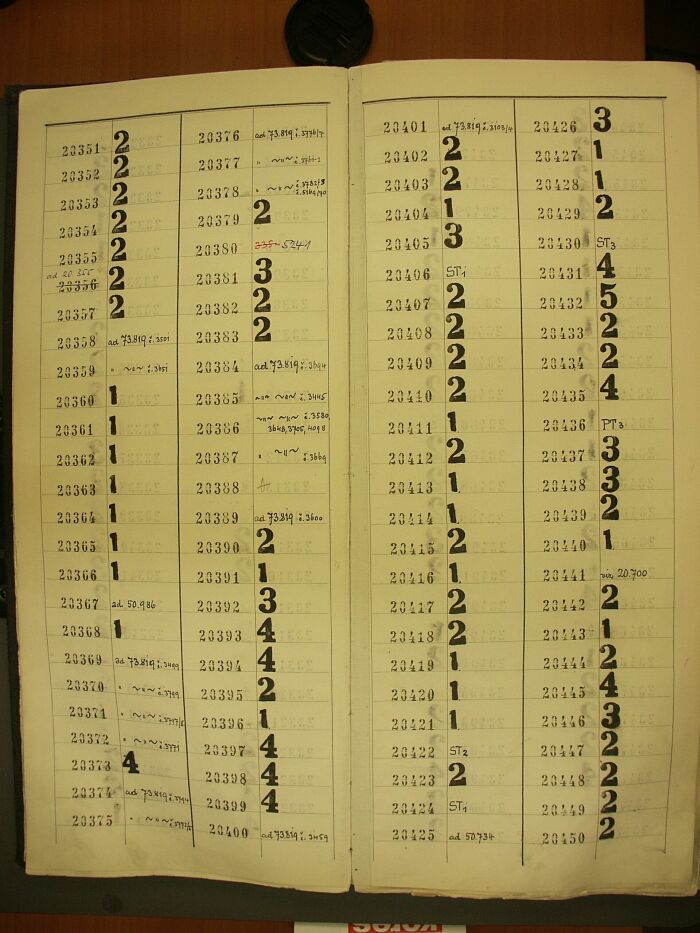 20351 2
20352 2
20353 2
20354 2
20355 2
ad 20.355
20356 2
20357 2
20358 ad 73.819 č.3501
20359 " ~"~ č.3651
20360 1
20361 1
20362 1
20363 1
20364 1
20365 1
20366 1
20367 ad 50.986
20368 1
20369 ad 73.819 č.3499
20370 " ~"~
20371 " ~"~
20372 " ~"~
20373 4
20374 ad 73.819
20375 " ~"~
20376 ad 73.819
20377 " ~"~
20378 " ~"~
20379 2
20380 5241
20381 3
20382 2
20383 2
20384 ad 73.819 č.3694
20385 ~"~ ~"~ č.3445
20386 ~"~ ~"~ č.3580,
3648,3705,4098
20387 " ~"~ č.3669
20388
20389 ad 73.819 č.3600
20390 2
20391 1
20392 3
20393 4
20394 4
20395 2
20396 1
20397 4
20398 4
20399 4
20400 ad 73.819 č.3459
20401 ad 73.819 č.3103/4
20402 2
20403 2
20404 1
20405 3
20406 ST1
20407 2
20408 2
20409 2
20410 2
20411 1
20412 2
20413 1
20414 1
20415 2
20416 1
20417 2
20418 2
20419 1
20420 1
20421 1
20422 ST2
20423 2
20424 ST1
20425 ad 50.734
20426 3
20427 1
20428 1
20429 2
20430 ST3
20431 4
20432 5
20433 2
20434 2
20435 4
20436 PT3
20437 3
20438 3
20439 2
20440 1
20441 viz 20.700
20442 2
20443 1
20444 2
20445 4
20446 3
20447 2
20448 2
20449 2
20450 2